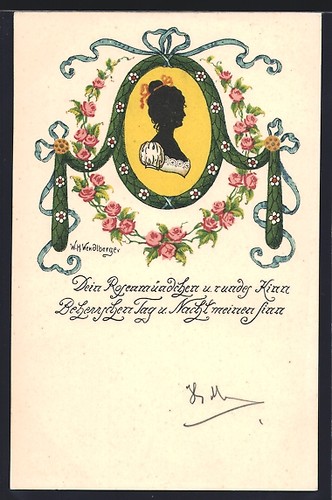 W.H. Wendlberger
Dein Rosenmündchen u. rundes Kinn
Beherrschen Tag u. Nacht meinen Sinn